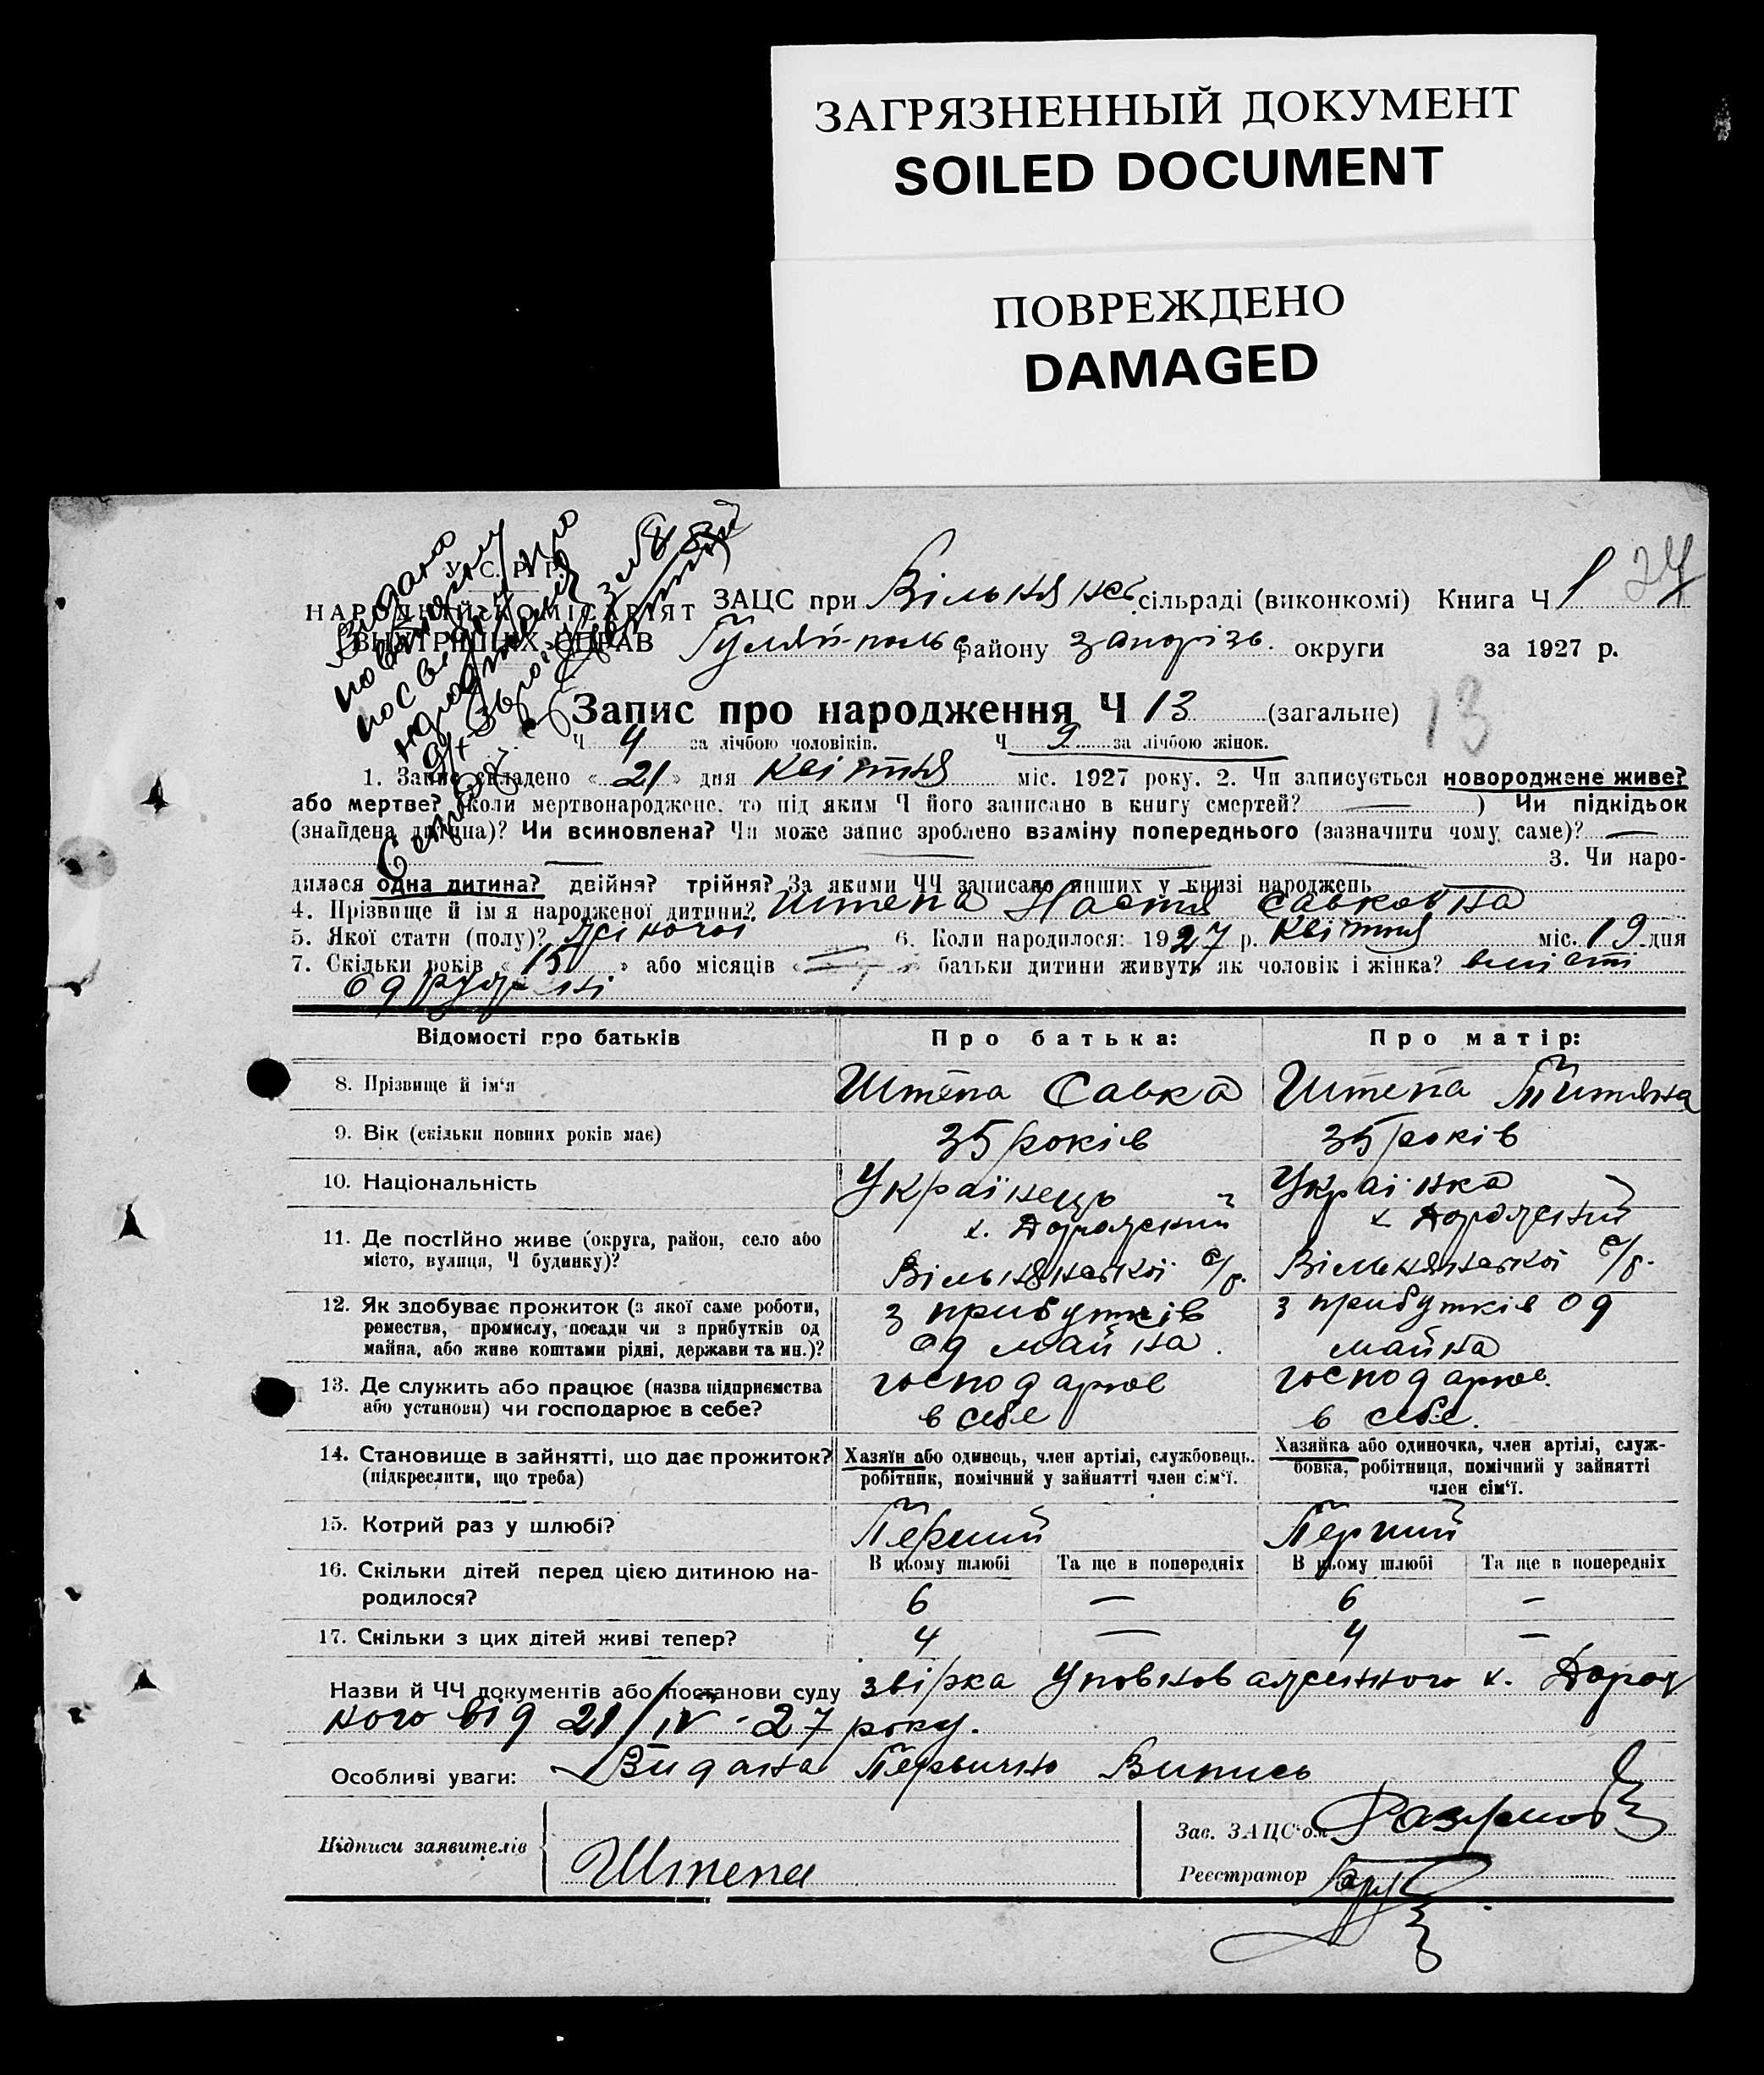 ЗАГРЯЗНЕННЫЙ ДОКУМЕНТ
SOILED DOCUMENT
ПОВРЕЖДЕНО
DAMAGED
Видано
повторну
У. С. Р. Р.
НАРОДНІЙ КОМІСАРІЯТ
ВНУТРІШНІХ СПРАВ
ЗАЦС при Вільнянсь. сільраді (виконкомі) Книга Ч 1 24
Гуляй-польс району Запорізь. округи за 1927 р.
Запис про народження Ч 13 (загальне) 13
Ч 4 за лічбою чоловіків. Ч 9 за лічбою жінок.
1. Запис складено «21» дня Квітня міс. 1927 року. 2. Чи записується новороджене живе?
або мертве? (коли мертвонароджене, то під яким Ч його записано в книгу смертей? — ) Чи підкідьок
(знайдена дитина)? Чи всиновлена? Чи може запис зроблено взаміну попереднього (зазначити чому саме)? —
— — — — 3. Чи наро-
дилася одна дитина? двійня? трійня? За якими ЧЧ записано инших у книзі народжень —
4. Прізвище й ім'я народженої дитини? Штепа Настя Савковна
5. Якої стати (полу)? Жіночої 6. Коли народилося: 1927 р. Квітня міс. 19 дня
7. Скільки років «15» або місяців « — » батьки дитини живуть як чоловік і жінка? вмісті
Відомості про батьків Про батька: Про матір:
8. Прізвище й ім'я Штепа Савка Штепа Титяна
9. Вік (скільки повних років має) 35 років 35 років
10. Національність Українець Українка
11. Де постійно живе (округа, район, село або х. Дорожений х. Дорожений
місто, вулиця, Ч будинку)? Вільнянської с/р. Вільнянської с/р.
12. Як здобуває прожиток (з якої саме роботи, з прибутків з прибутків од
ремества, промислу, посади чи з прибутків од
майна, або живе коштами рідні, держави та ин.)? од майна. майна
13. Де служить або працює (назва підприємства господарює господарює.
або установи) чи господарює в себе? в себе в себе.
14. Становище в зайнятті, що дає прожиток? Хазяїн або одинець, член артілі, службовець. Хазяйка або одиночка, член артілі, служ-
(підкреслити, що треба) робітник, помічний у зайнятті член сім'ї. бовка, робітниця, помічний у зайнятті
член сім'ї.
15. Котрий раз у шлюбі? Перший Перший
В цьому шлюбі Та ще в попередніх В цьому шлюбі Та ще в попередніх
16. Скільки дітей перед цією дитиною на-
родилося? 6 — 6 —
17. Скільки з цих дітей живі тепер? 4 — 4 —
Назви й ЧЧ документів або постанови суду звірка Уповноваженного х. Дорож
ного від 21/IV-27 року.
Особливі уваги: Видана Первична Випись
Підписи заявителів Штепа
Зав. ЗАЦС'ом
Реєстратор